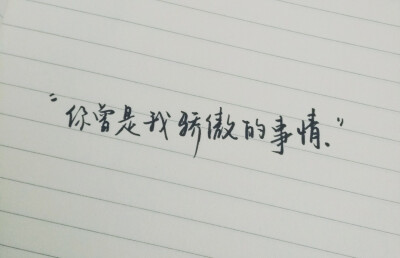 “你曾是我骄傲的事情、”